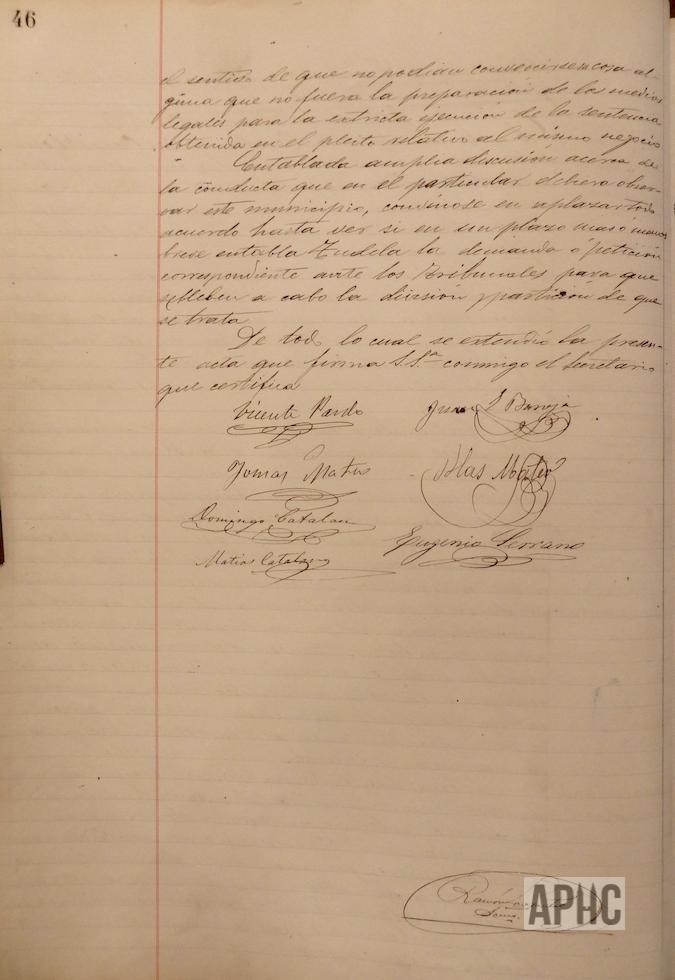 46
el sentido de que no podian convenirse en cosa al-
guna que no fuera la preparación de los medios
legales para la extricta ejecución de la sentencia
obtenida en el pleito relativo al mismo negocio
Entablada amplia discusion acerca de
la conducta que en el particular debiera obser-
var este municipio, convinose en aplazar todo
acuerdo hasta ver si en un plazo mas ó menos
breve entabla Tudela la demanda ó petición
correspondiente ante los tribunales para que
se lleben a cabo la división y partición de que
se trata
De todo lo cual se extendió la presen-
te acta que firma S.Sª conmigo el Secretario
que certifica
Vicente Pardo
Juan L Baroja
Tomas Mateo
Blas Mateo
Domingo Catalan
Eugenio Serrano
Matias Catalan
Ramón
Srio.
APHC